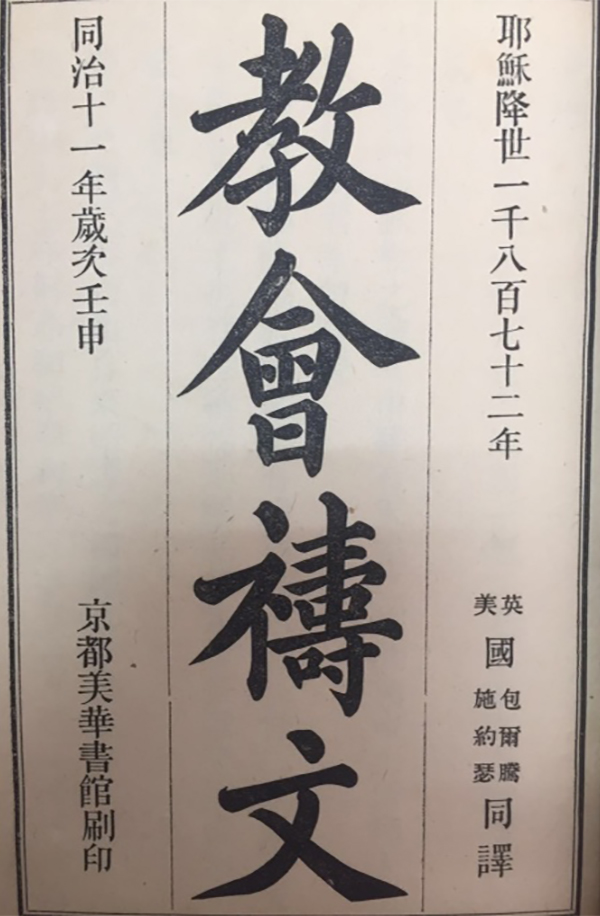 耶穌降世一千八百七十二年
英美國包爾騰施約瑟同譯
教會禱文
同治十一年歲次壬申
京都美華書館刷印